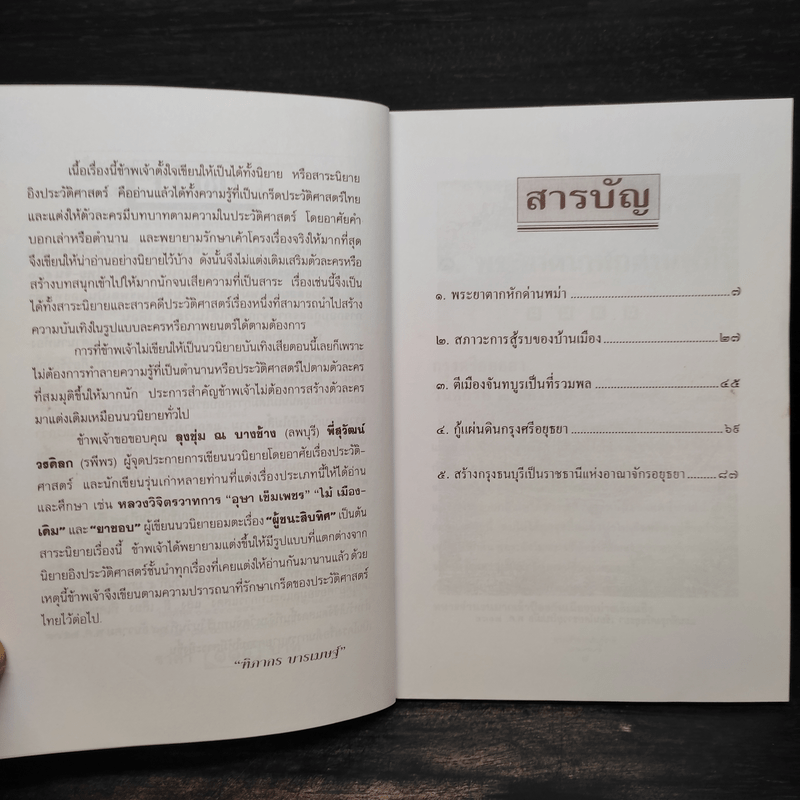 เนื้อเรื่องนี้ข้าพเจ้าตั้งใจเขียนให้เป็นได้ทั้งนิยาย หรือสาระนิยาย
อิงประวัติศาสตร์ คืออ่านแล้วได้ทั้งความรู้ที่เป็นเกร็ดประวัติศาสตร์ไทย
และแต่งให้ตัวละครมีบทบาทตามความในประวัติศาสตร์ โดยอาศัยคำ
บอกเล่าหรือตำนาน และพยายามรักษาเค้าโครงเรื่องจริงให้มากที่สุด
จึงเขียนให้น่าอ่านอย่างนิยายไว้บ้าง ดังนั้นจึงไม่แต่งเติมเสริมตัวละครหรือ
สร้างบทสนุกเข้าไปให้มากนักจนเสียความที่เป็นสาระ เรื่องเช่นนี้จึงเป็น
ได้ทั้งสาระนิยายและสารคดีประวัติศาสตร์เรื่องหนึ่งที่สามารถนำไปสร้าง
ความบันเทิงในรูปแบบละครหรือภาพยนตร์ได้ตามต้องการ
การที่ข้าพเจ้าไม่เขียนให้เป็นนวนิยายบันเทิงเสียตอนนี้เลยก็เพราะ
ไม่ต้องการทำลายความรู้ที่เป็นตำนานหรือประวัติศาสตร์ไปตามตัวละคร
ที่สมมุติขึ้นให้มากนัก ประการสำคัญข้าพเจ้าไม่ต้องการสร้างตัวละคร
มาแต่งเติมเหมือนนวนิยายทั่วไป
ข้าพเจ้าขอขอบคุณ ลุงชุ่ม ณ บางช้าง (ลพบุรี) พี่สุวัฒน์
วรดิลก (รพีพร) ผู้จุดประกายการเขียนนวนิยายโดยอาศัยเรื่องประวัติ-
ศาสตร์ และนักเขียนรุ่นเก่าหลายท่านที่แต่งเรื่องประเภทนี้ให้ได้อ่าน
และศึกษา เช่น หลวงวิจิตรวาทการ "อุษา เข็มเพชร" "ไม้ เมือง-
เดิม" และ "ยาขอบ" ผู้เขียนนวนิยายอมตะเรื่อง "ผู้ชนะสิบทิศ" เป็นต้น
สาระนิยายเรื่องนี้ ข้าพเจ้าได้พยายามแต่งขึ้นให้มีรูปแบบที่แตกต่างจาก
นิยายอิงประวัติศาสตร์ชั้นนำทุกเรื่องที่เคยแต่งให้อ่านกันมานานแล้ว ด้วย
เหตุนี้ข้าพเจ้าจึงเขียนตามความปรารถนาที่รักษาเกร็ดของประวัติศาสตร์
ไทยไว้ต่อไป.
"ทิภากร บารเมษฐ์"
สารบัญ
๑. พระยาตากหักด่านพม่า ๗
๒. สภาวะการสู้รบของบ้านเมือง ๒๗
๓. ตีเมืองจันทบูรเป็นที่รวมพล ๔๕
๔. กู้แผ่นดินกรุงศรีอยุธยา ๖๙
๕. สร้างกรุงธนบุรีเป็นราชธานีแห่งอาณาจักรอยุธยา ๘๗